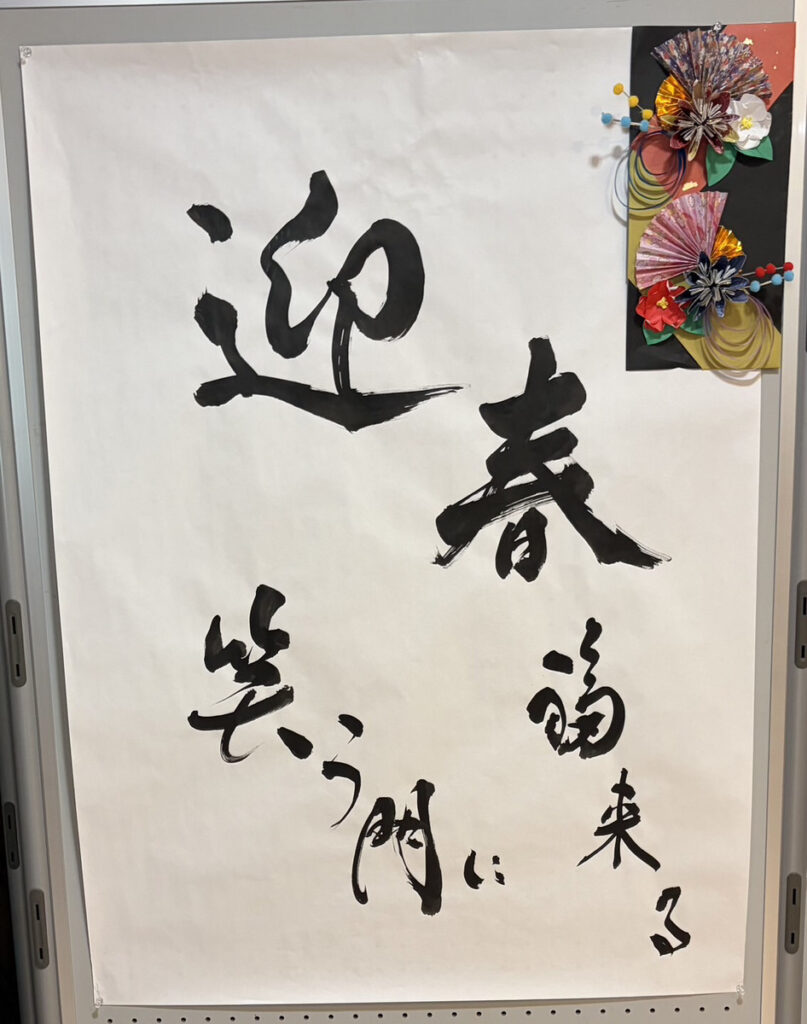 迎春
笑う門に
福来る